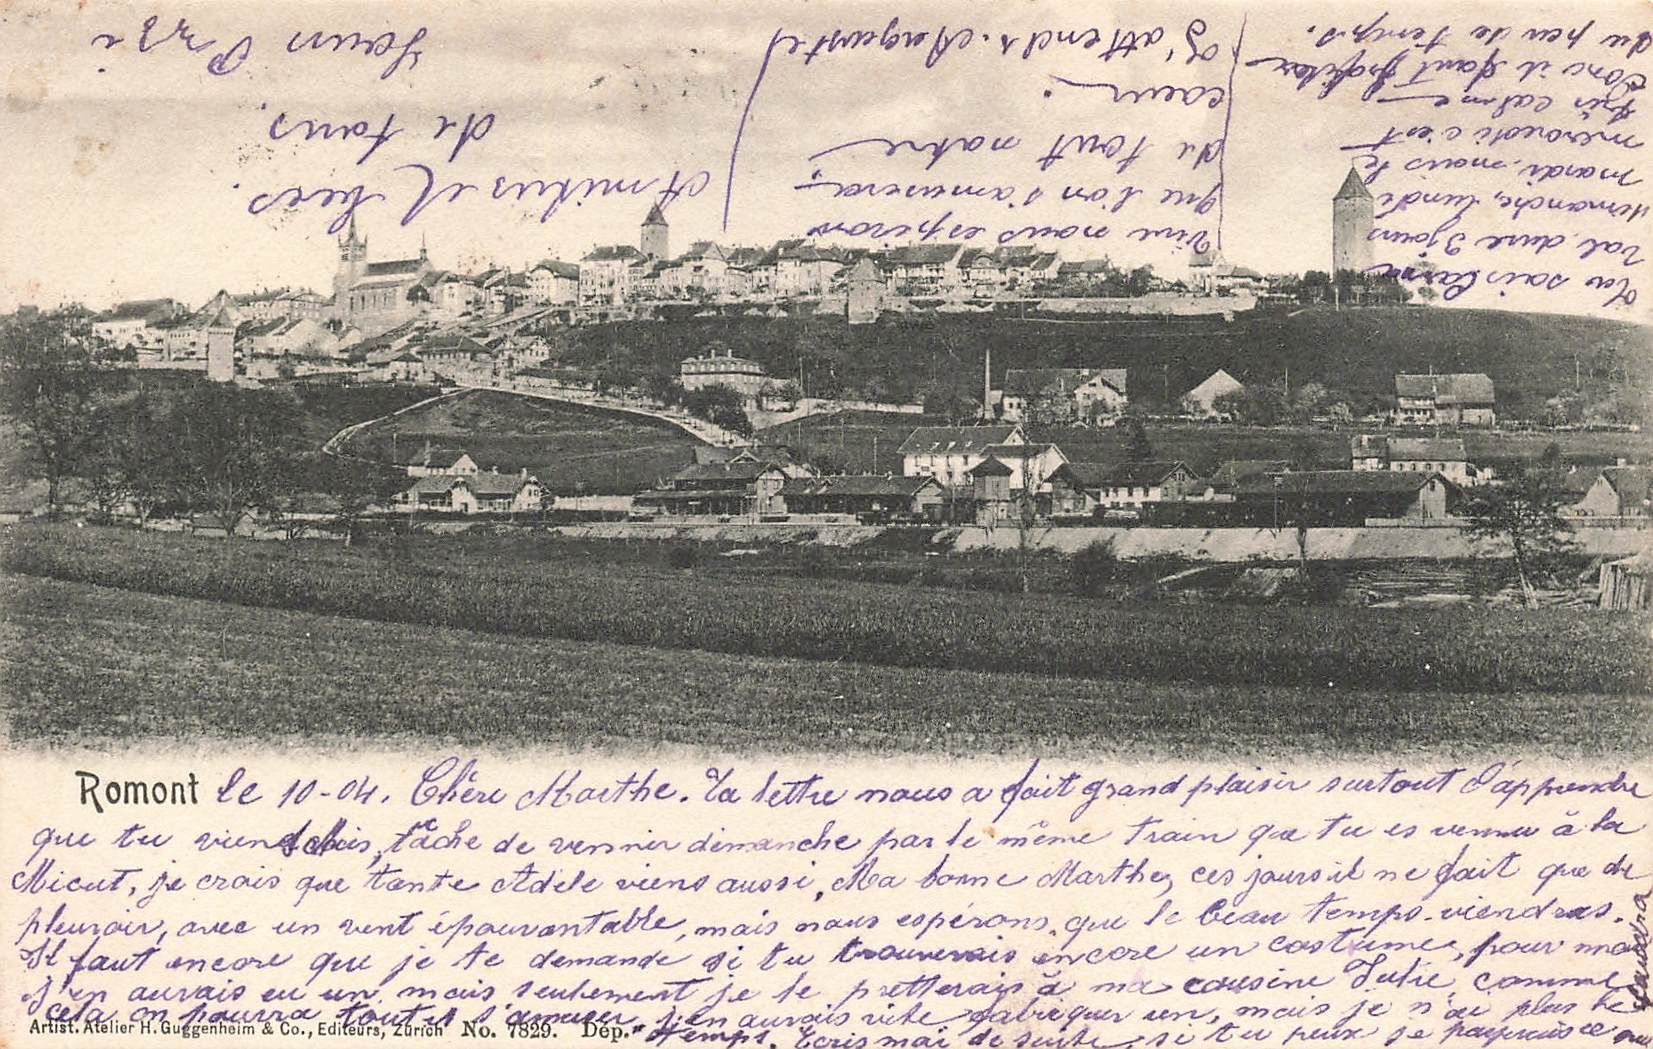 Romont le 10-04. Chère Marthe. Ta lettre nous a fait grand plaisir surtout d'apprendre
que tu viens tâche de vennir dimanche par le même train que tu es vennu à la
Micut, je crois que tante Adèle viens aussi, Ma bonne Marthe, ces jours il ne fait que de
pleuvoir, avec un vent épouvantable, mais nous espérons, que le beau temps viendras.
Il faut encore que je te demande si tu trouverais encore un costume, pour moi
j'en aurais eu un, mais seulement je le pretterais à ma cousine Julie comme
cela on pourra toutes s'amuser, j'en aurais vite fabriquer un, mais je n'ai plus le
temps. Ecris moi de suite, si tu peux je payerais ce
que
faudra
Artist. Atelier H. Guggenheim & Co., Editeurs, Zürich No. 7829. Dép.
tu sais
val dure 3 jours
dimanche, lundi
mardi, mais le
mécredi c'est
très calme
Donc il faut profiter
du peu de temps.
Vive nous espérons
que l'on s'amusera,
de tout notre
coeur.
J'attends.
Amitiés et
de tous.